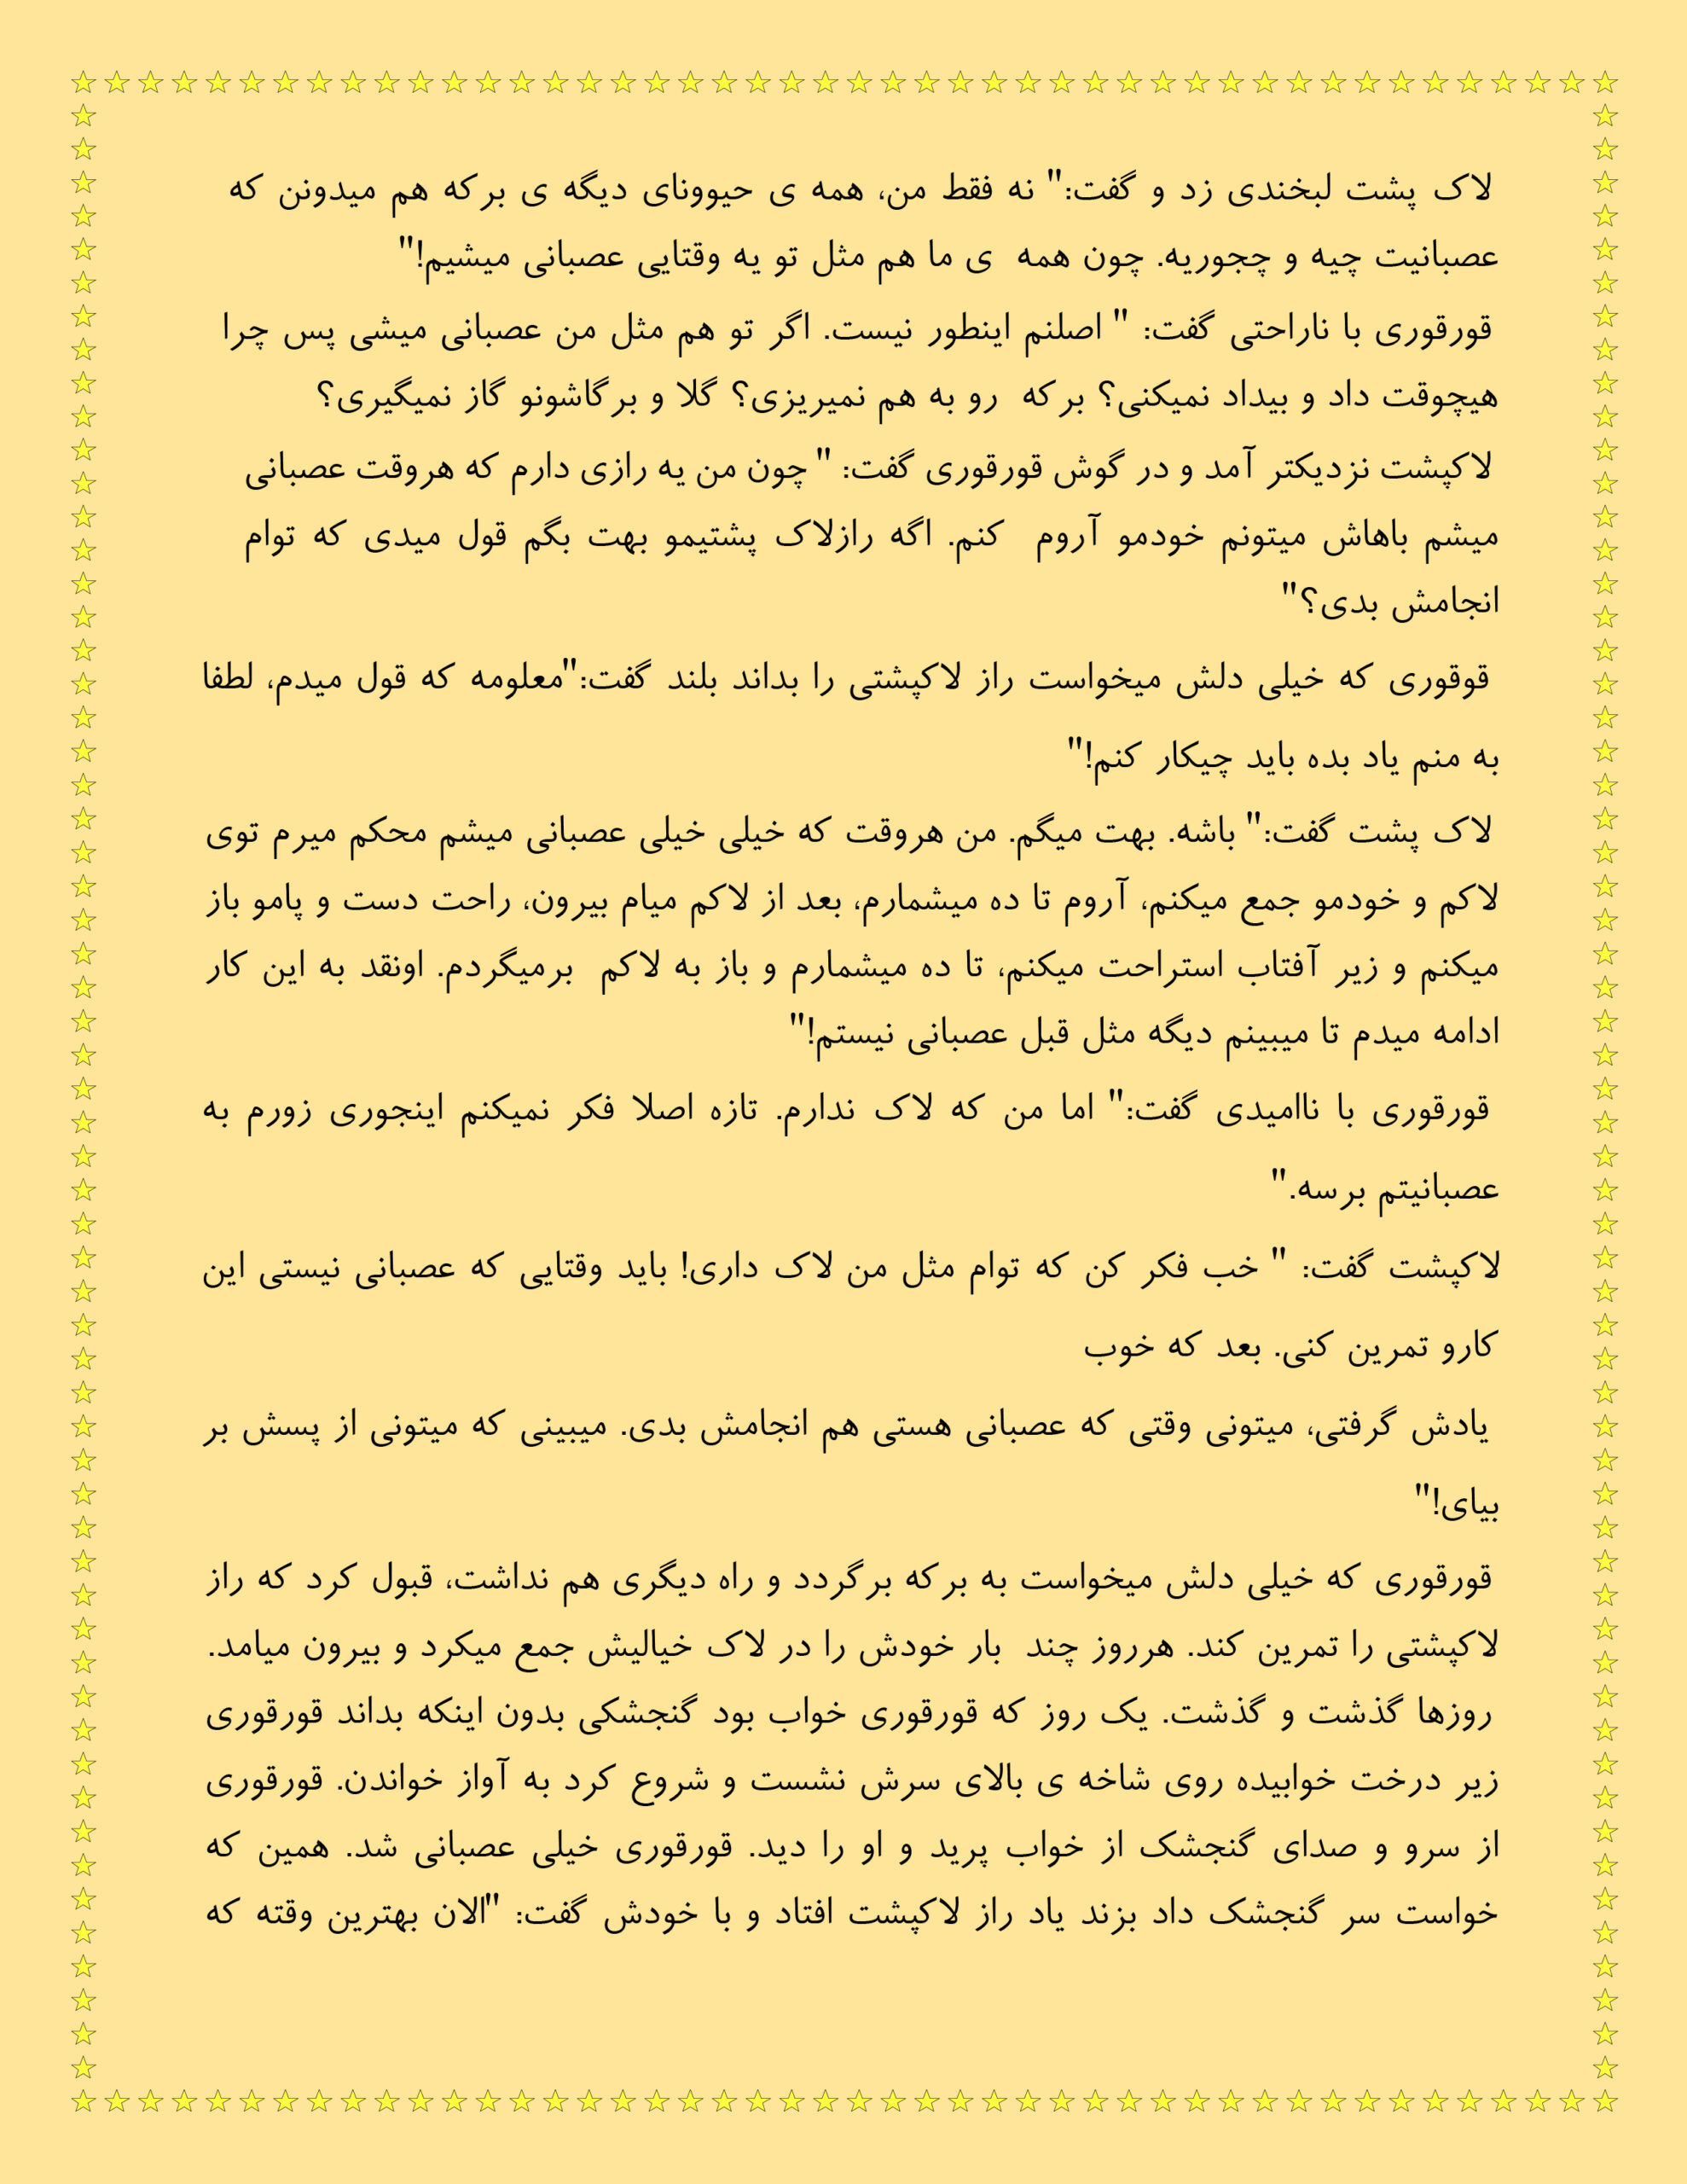 لاک پشت لبخندی زد و گفت:" نه فقط من، همه ی حیوونای دیگه ی برکه هم میدونن که
عصبانیت چیه و چجوریه. چون همه ی ما هم مثل تو یه وقتایی عصبانی میشیم!"
قورقوری با ناراحتی گفت: " اصلنم اینطور نیست. اگر تو هم مثل من عصبانی میشی پس چرا
هیچوقت داد و بیداد نمیکنی؟ برکه رو به هم نمیریزی؟ گلا و برگاشونو گاز نمیگیری؟
لاکپشت نزدیکتر آمد و در گوش قورقوری گفت: " چون من یه رازی دارم که هروقت عصبانی
میشم باهاش میتونم خودمو آروم کنم. اگه رازلاک پشتیمو بهت بگم قول میدی که توام
انجامش بدی؟"
قوقوری که خیلی دلش میخواست راز لاکپشتی را بداند بلند گفت:"معلومه که قول میدم، لطفا
به منم یاد بده باید چیکار کنم!"
لاک پشت گفت:" باشه. بهت میگم. من هروقت که خیلی خیلی عصبانی میشم محکم میرم توی
لاکم و خودمو جمع میکنم، آروم تا ده میشمارم، بعد از لاکم میام بیرون، راحت دست و پامو باز
میکنم و زیر آفتاب استراحت میکنم، تا ده میشمارم و باز به لاکم برمیگردم. اونقد به این کار
ادامه میدم تا میبینم دیگه مثل قبل عصبانی نیستم!"
قورقوری با ناامیدی گفت:" اما من که لاک ندارم. تازه اصلا فکر نمیکنم اینجوری زورم به
عصبانیتم برسه."
لاکپشت گفت: " خب فکر کن که توام مثل من لاک داری! باید وقتایی که عصبانی نیستی این
کارو تمرین کنی. بعد که خوب
یادش گرفتی، میتونی وقتی که عصبانی هستی هم انجامش بدی. میبینی که میتونی از پسش بر
بیای!"
قورقوری که خیلی دلش میخواست به برکه برگردد و راه دیگری هم نداشت، قبول کرد که راز
لاکپشتی را تمرین کند. هرروز چند بار خودش را در لاک خیالیش جمع میکرد و بیرون میامد.
روزها گذشت و گذشت. یک روز که قورقوری خواب بود گنجشکی بدون اینکه بداند قورقوری
زیر درخت خوابیده روی شاخه ی بالای سرش نشست و شروع کرد به آواز خواندن. قورقوری
از سرو و صدای گنجشک از خواب پرید و او را دید. قورقوری خیلی عصبانی شد. همین که
خواست سر گنجشک داد بزند یاد راز لاکپشت افتاد و با خودش گفت: "الان بهترین وقته که